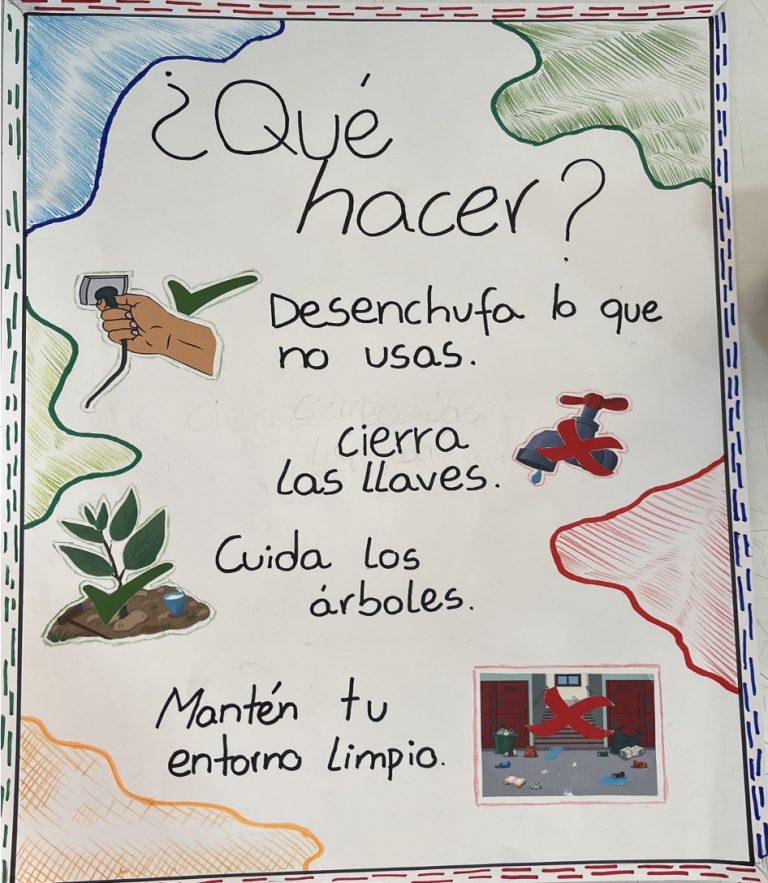 ¿Qué
hacer?
Desenchufa lo que
no usas.
cierra
las llaves.
Cuida los
árboles.
Mantén tu
entorno limpio.